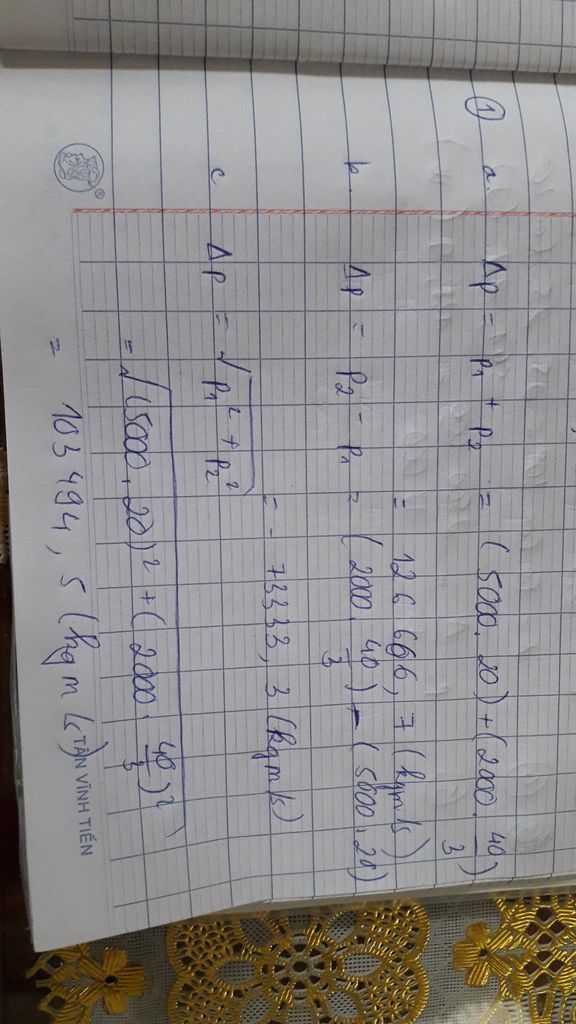 ①
a. Δp = p₁ + p₂ = (5000.20) + (2000. 40/3)
= 126 666,7 (kgm/s)
b. Δp = p₂ - p₁ = (2000. 40/3) - (5000.20)
= - 73333,3 (kgm/s)
c Δp = √p₁² + p₂²
= √(5000.20)² + (2000. 40/3)²
= 103 494,5 (kgm/s)
®
TÂN VĨNH TIẾN